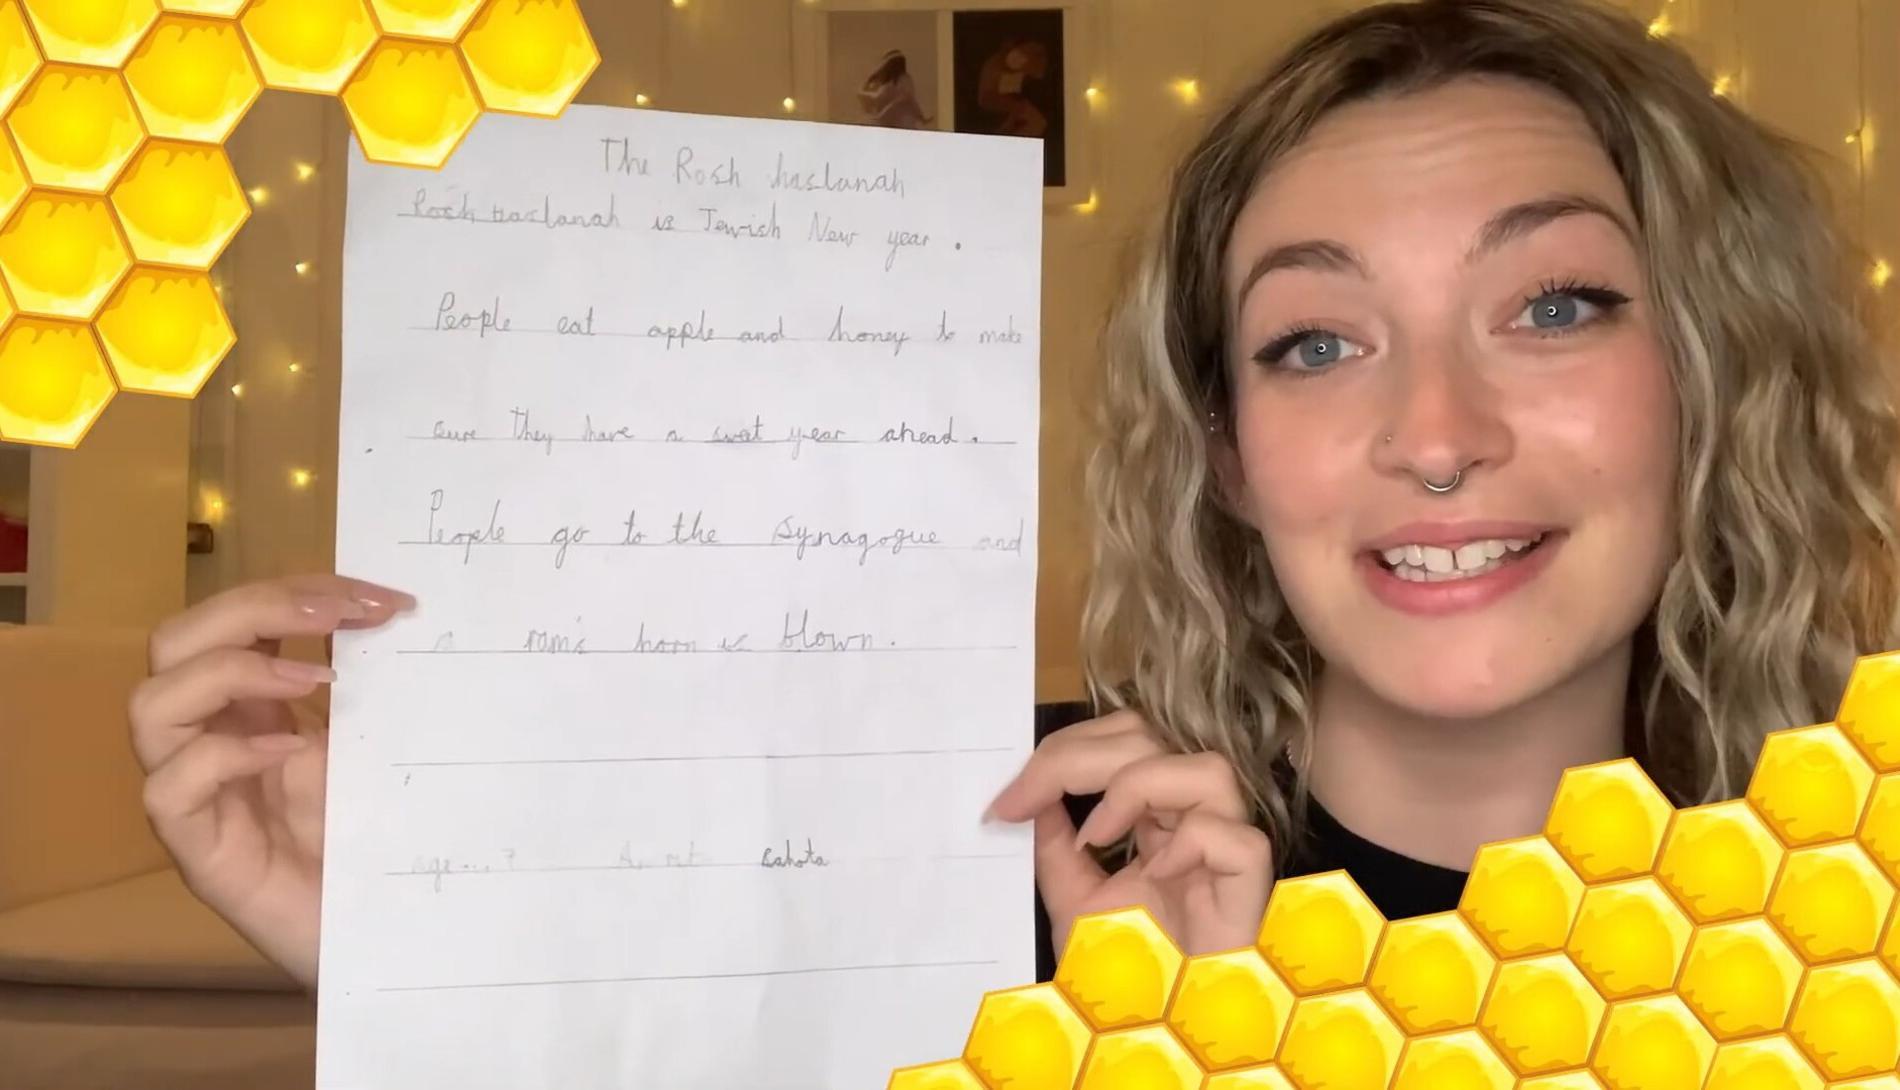 The Rosh haslanah
Rosh Haslanah is Jewish New year.
People eat apple and honey to make
sure they have a sweet year ahead.
People go to the synagogue and
a ram's horn is blown.
age...? Sahota